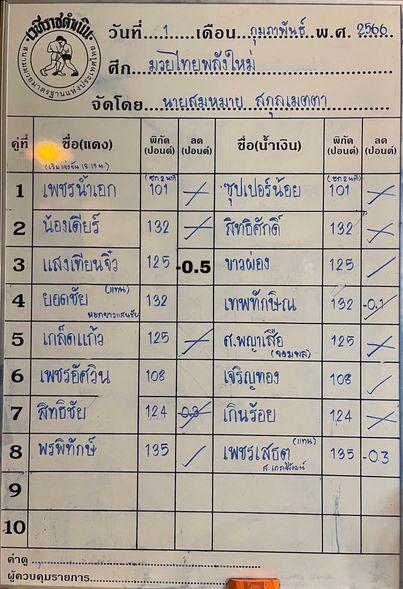 เวทีราชดำเนิน
สนามมวยมาตรฐานแห่งประเทศไทย
วันที่ 1 เดือน กุมภาพันธ์ พ.ศ. 2566
ศึก มวยไทยพลังใหม่
จัดโดย นายสมหมาย สกุลเมตตา
คู่ที่ ชื่อ(แดง) พิกัด (ปอนด์) ลด (ปอนด์) ชื่อ(น้ำเงิน) พิกัด (ปอนด์) ลด (ปอนด์)
1 เพชรน้ำเอก 101 ซุปเปอร์น้อย 101
2 น้องเดียร์ 132 สิทธิศักดิ์ 132
3 แสงเทียนจิ๋ว 125 -0.5 ขาวผ่อง 125
4 ยอดชัย (แทน) 132 เทพทักษิณ 132 -0.1
5 เกล็ดแก้ว 125 ศ.พญาเสือ 125
(จอมพล)
6 เพชรอัศวิน 108 เจริญทอง 108
7 สิทธิชัย 124 -0.3 เกินร้อย 124
8 พรพิทักษ์ 135 เพชรเสธต (แทน) 135 -0.3
9
10
ค่าดู
ผู้ควบคุมรายการ